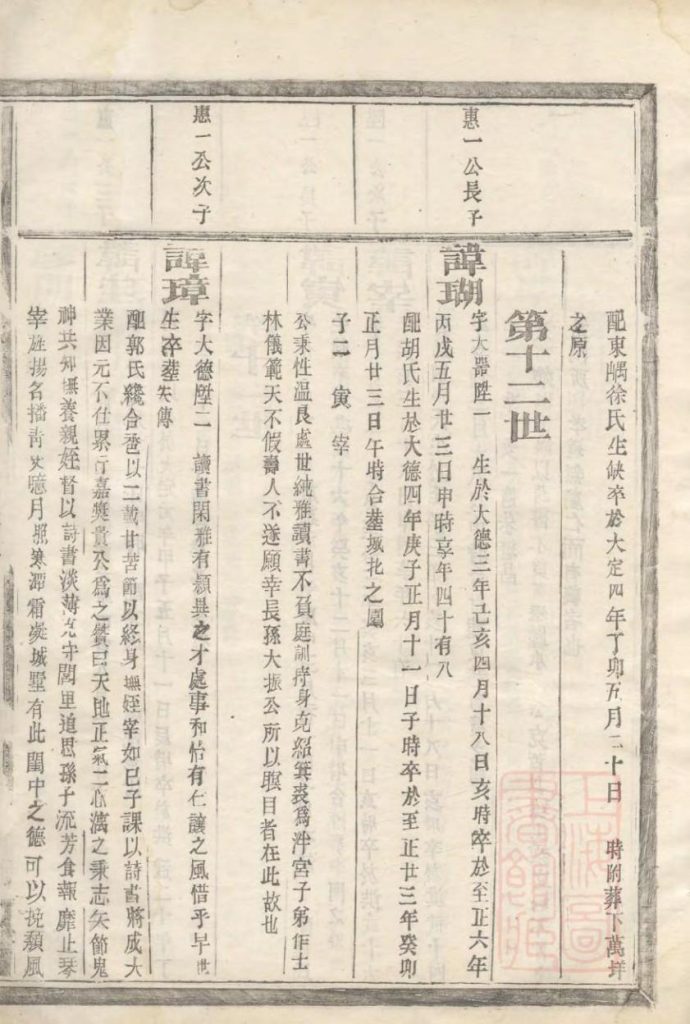 配東隅徐氏生缺卒於大定四年丁卯五月二十日　時附葬下萬垟
之原
第十二世
惠一公長子
諱瑚
字大器陞一　生於大德三年己亥四月十八日亥時卒於至正六年
丙戌五月廿三日申時享年四十有八
配胡氏生於大德四年庚子正月十一日子時卒於至正廿三年癸卯
正月廿三日午時合墓城北之園
子二　寅　宰
公秉性温良處世純雅讀書不負庭訓持身克紹箕裘爲泮宮子弟作士
林儀範天不假壽人不遂願幸長孫大振公所以瞑目者在此故也
惠一公次子
諱璋
字大德陞二　讀書閑雅有穎異之才處事和怡有仁讓之風惜乎早世
生卒墓失傳
配郭氏纔合巹以二載甘苦節以終身撫姪宰如已子課以詩書將成大
業因元不仕累行嘉獎貴公爲之贊曰天地正氣二心漓之秉志矢節鬼
神共知撫養親姪督以詩書淡薄克守閭里追思孫子流芳食報靡止琴
宰雄揚名播靑史聽月照寒潭霜凝城墅有此閨中之德可以挽頹風
上海圖書館藏